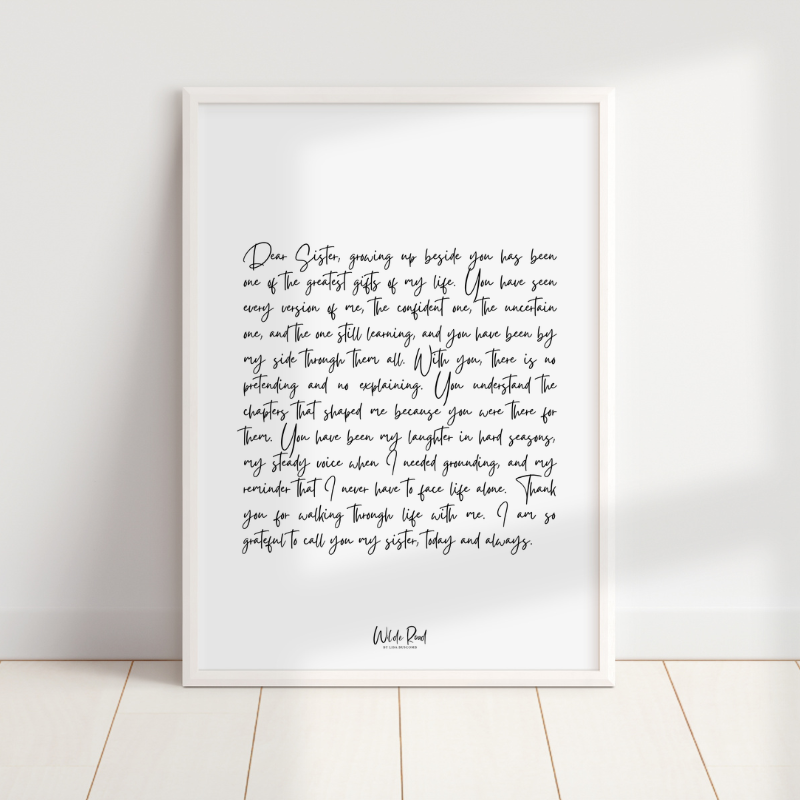 Dear Sister, growing up beside you has been
one of the greatest gifts of my life. You have seen
every version of me, the confident one, the uncertain
one, and the one still learning, and you have been by
my side through them all. With you, there is no
pretending and no explaining. You understand the
chapters that shaped me because you were there for
them. You have been my laughter in hard seasons,
my steady voice when I needed grounding, and my
reminder that I never have to face life alone. Thank
you for walking through life with me. I am so
grateful to call you my sister, today and always.
Wilde Road
BY LISA